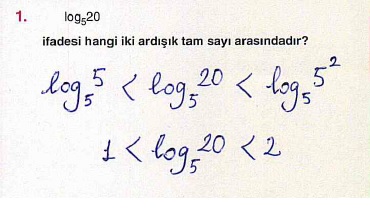 1. log₅20
ifadesi hangi iki ardışık tam sayı arasındadır?
log₅5 < log₅20 < log₅5²
1 < log₅20 < 2